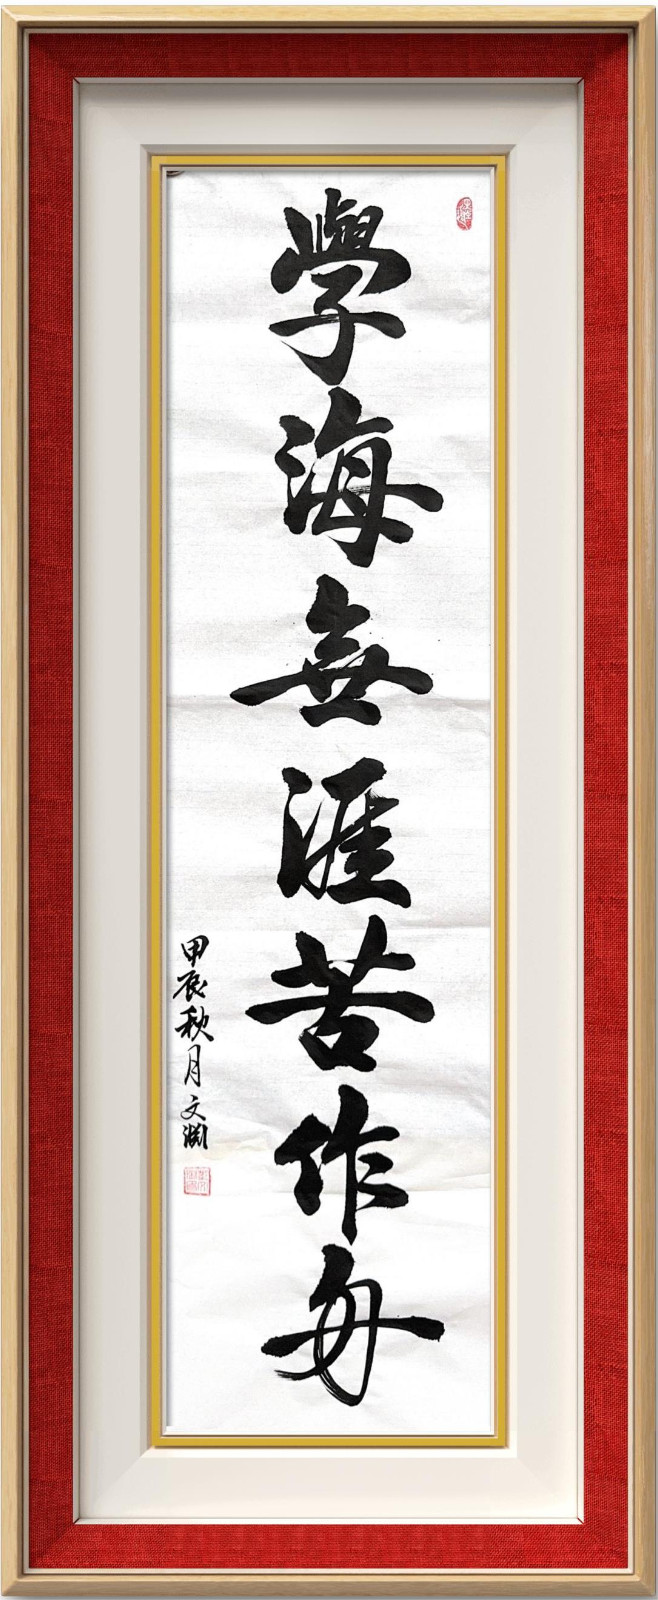 學海無涯苦作舟
甲辰秋月文渊